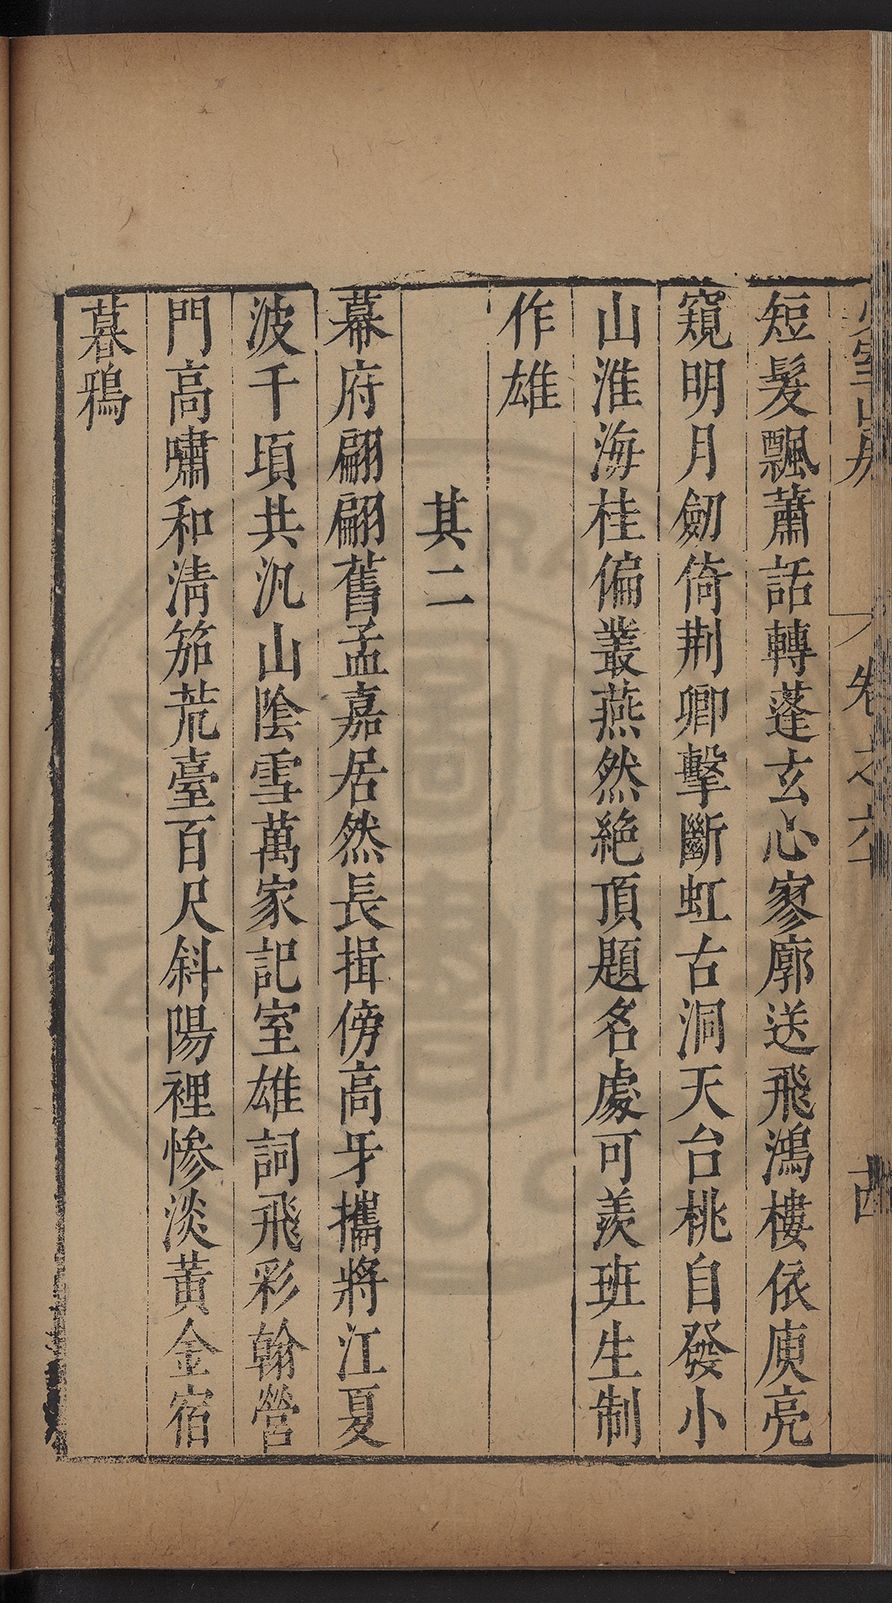 短髮飄蕭話轉蓬玄心寥廓送飛鴻樓依庾亮
窺明月劒倚荆卿擊斷虹古洞天台桃自發小
山淮海桂偏叢燕然絶頂題名處可羨班生制
作雄
其二
幕府翩翩舊孟嘉居然長揖傍高牙攜將江夏
波千頃共汎山陰雪萬家記室雄詞飛彩翰營
門高嘯和清笳荒臺百尺斜陽裡慘淡黃金宿
暮鴉
卷之六